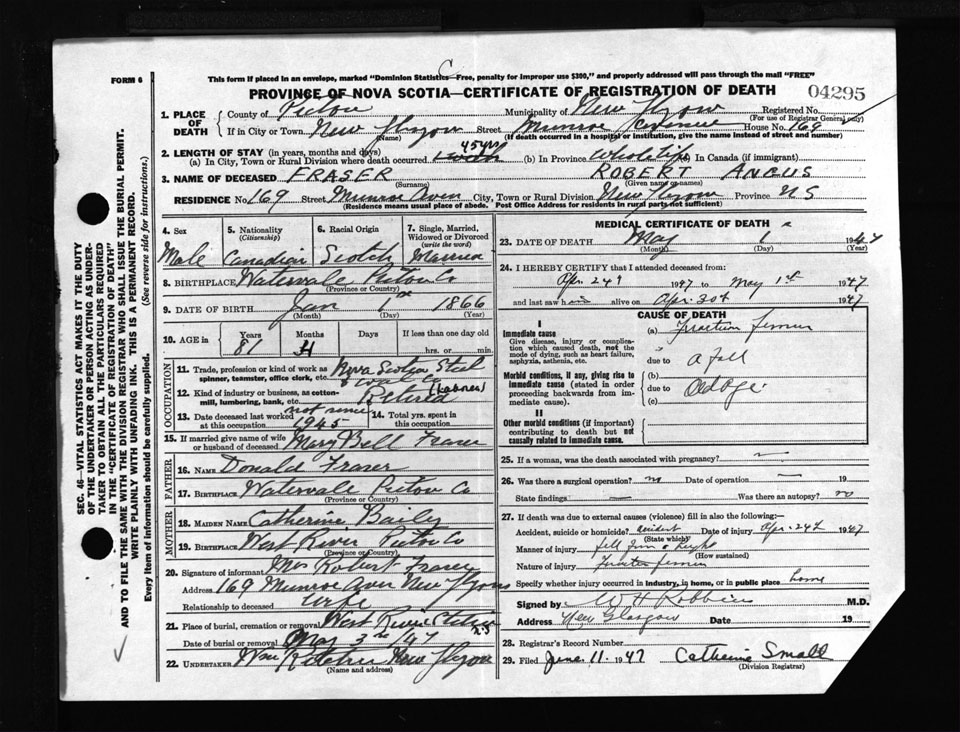 FORM 6
This form if placed in an envelope, marked "Dominion Statistics—Free, penalty for improper use $300," and properly addressed will pass through the mail "FREE"
PROVINCE OF NOVA SCOTIA—CERTIFICATE OF REGISTRATION OF DEATH
04295
1. PLACE OF DEATH
County of Pictou Municipality of New Glasgow Registered No.
(For use of Registrar General only)
If in City or Town New Glasgow Street Munroe Avenue House No. 169
(Name) (If death occurred in a hospital or institution, give the name instead of street and number)
2. LENGTH OF STAY (in years, months and days)
45 yrs
(a) In City, Town or Rural Division where death occurred (b) In Province Whole life In Canada (if immigrant)
3. NAME OF DECEASED FRASER ROBERT ANGUS
(Surname) (Given name or names)
RESIDENCE No. 169 Street Munroe Aven City, Town or Rural Division New Glasgow Province NS
(Residence means usual place of abode. Post Office Address for residents in rural parts not sufficient)
4. Sex 5. Nationality (Citizenship) 6. Racial Origin 7. Single, Married, Widowed or Divorced (write the word)
Male Canadian Scotch Married
8. BIRTHPLACE Watervale Pictou Co
(Province or Country)
9. DATE OF BIRTH Jan 1 1866
(Month) (Day) (Year)
10. AGE in Years Months Days If less than one day
81 4 hrs. or min.
OCCUPATION
11. Trade, profession or kind of work as spinner, teamster, office clerk, etc. Nova Scotia Steel & Coal Co
12. Kind of industry or business, as cotton-mill, lumbering, bank, etc. Retired (Laborer)
13. Date deceased last worked at this occupation not since 1945 14. Total yrs. spent in this occupation
15. If married give name of wife or husband of deceased Mary Bell Fraser
FATHER
16. NAME Donald Fraser
17. BIRTHPLACE Watervale Pictou Co
(Province or Country)
MOTHER
18. MAIDEN NAME Catherine Baily
19. BIRTHPLACE West River Pictou Co
(Province or Country)
20. Signature of informant Mrs Robert Fraser
Address 169 Munroe Aven New Glasgow
Relationship to deceased Wife
21. Place of burial, cremation or removal West River Station
Date of burial or removal May 3rd /47 NS
22. UNDERTAKER New Glasgow
(Name and address)
MEDICAL CERTIFICATE OF DEATH
23. DATE OF DEATH May 1 1947
(Month) (Day) (Year)
24. I HEREBY CERTIFY that I attended deceased from:
Apr. 24 1947 to May 1st 1947
and last saw him alive on Apr. 30th 1947
CAUSE OF DEATH
I
Immediate cause
Give disease, injury or complication which caused death, not the mode of dying, such as heart failure, asphyxia, asthenia, etc.
(a) Fracture femur
due to a fall
Morbid conditions, if any, giving rise to immediate cause (stated in order proceeding backwards from immediate cause).
(b)
due to Old age
(c)
II
Other morbid conditions (if important) contributing to death but not causally related to immediate cause.
25. If a woman, was the death associated with pregnancy? —
26. Was there a surgical operation? no Date of operation — 19
State findings — Was there an autopsy? no
27. If death was due to external causes (violence) fill in also the following:
Accident, suicide or homicide? accident Date of injury Apr. 24th 1947
(State which)
Manner of injury fell from a height
(How sustained)
Nature of injury Fracture femur
Specify whether injury occurred in industry, in home, or in public place home
Signed by W H Robbins M.D.
Address New Glasgow Date 19
28. Registrar's Record Number
29. Filed June 11 1947 Catherine Small
(Division Registrar)
SEC. 46—VITAL STATISTICS ACT MAKES IT THE DUTY
OF THE UNDERTAKER OR PERSON ACTING AS UNDER-
TAKER TO OBTAIN ALL THE PARTICULARS REQUIRED
IN THE "CERTIFICATE OF REGISTRATION OF DEATH"
AND TO FILE THE SAME WITH THE DIVISION REGISTRAR WHO SHALL ISSUE THE BURIAL PERMIT.
WRITE PLAINLY WITH UNFADING INK. THIS IS A PERMANENT RECORD.
Every item of information should be carefully supplied. (See reverse side for instructions.)